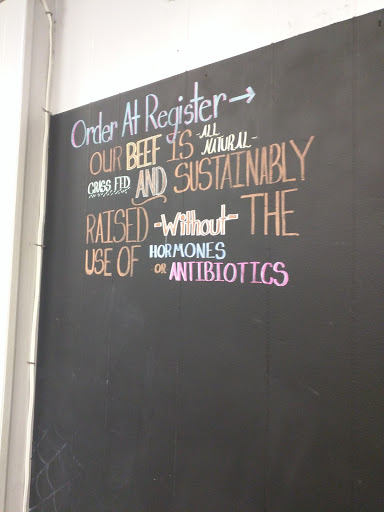 Order At Register →
OUR BEEF IS -ALL NATURAL-
GRASS FED AND SUSTAINABLY
RAISED -Without- THE
USE OF HORMONES
OR ANTIBIOTICS